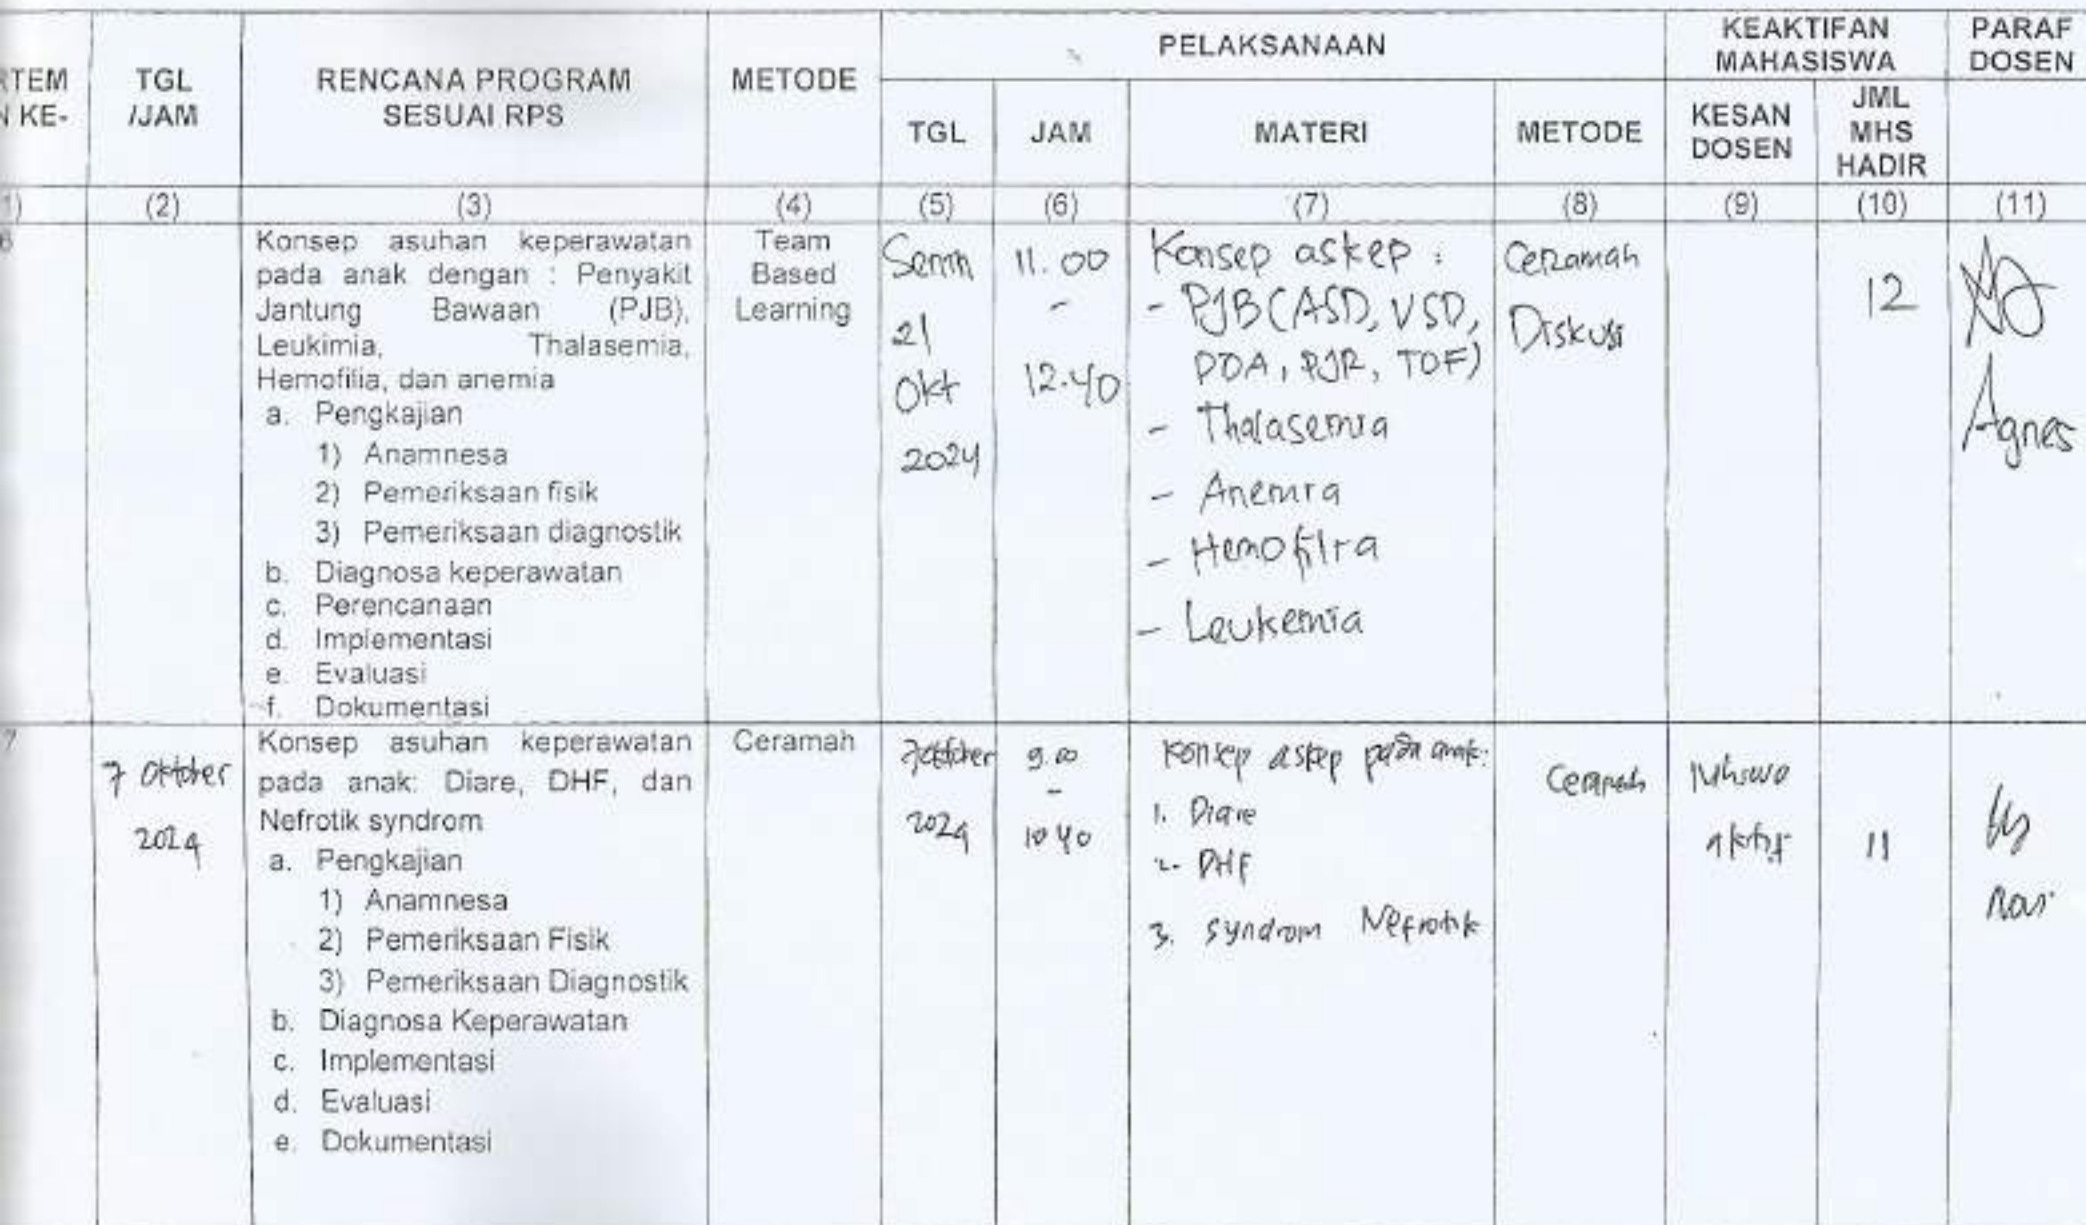 RTEM
N KE-
TGL
/JAM
RENCANA PROGRAM
SESUAI RPS
METODE
PELAKSANAAN
TGL
JAM
MATERI
METODE
KEAKTIFAN
MAHASISWA
KESAN
DOSEN
JML
MHS
HADIR
PARAF
DOSEN
1)
(2)
(3)
(4)
(5)
(6)
(7)
(8)
(9)
(10)
(11)
6
Konsep asuhan keperawatan
pada anak dengan : Penyakit
Jantung Bawaan (PJB),
Leukimia, Thalasemia,
Hemofilia, dan anemia
a. Pengkajian
1) Anamnesa
2) Pemeriksaan fisik
3) Pemeriksaan diagnostik
b. Diagnosa keperawatan
c. Perencanaan
d. Implementasi
e. Evaluasi
f. Dokumentasi
Team
Based
Learning
Senin
21
Okt
2024
11.00
-
12.40
Konsep askep :
- PJB (ASD, VSD,
PDA, PJR, TOF)
- Thalasemia
- Anemia
- Hemofilia
- Leukemia
Ceramah
Diskusi
12
Agnes
7
7 Oktober
2024
Konsep asuhan keperawatan
pada anak: Diare, DHF, dan
Nefrotik syndrom
a. Pengkajian
1) Anamnesa
2) Pemeriksaan Fisik
3) Pemeriksaan Diagnostik
b. Diagnosa Keperawatan
c. Implementasi
d. Evaluasi
e. Dokumentasi
Ceramah
7 Oktober
2024
9.00
-
10 40
Konsep askep pada anak:
1. Diare
2. DHF
3. Syndrom Nefrotik
Ceramah
aktif
11